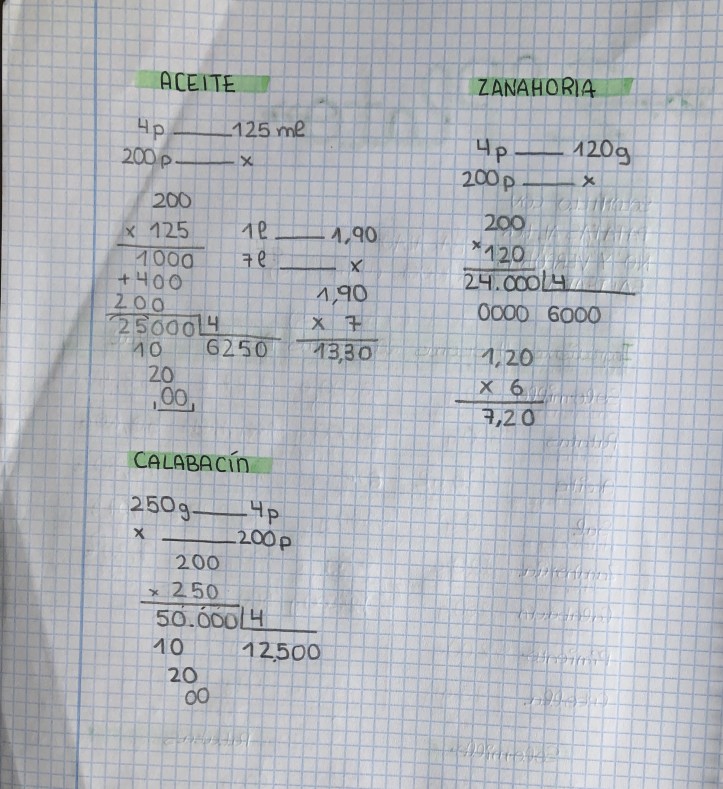 ACEITE
4p ___ 125 ml
200p ___ x
200
x 125
1000
+400
200
25000 | 4
10 6250
20
00
1l ___ 1,90
7l ___ x
1,90
x 7
13,30
ZANAHORIA
4p ___ 120g
200p ___ x
200
x 120
24.000 | 4
0000 6000
1,20
x 6
7,20
CALABACÍN
250g ___ 4p
x ___ 200p
200
x 250
50.000 | 4
10 12,500
20
00